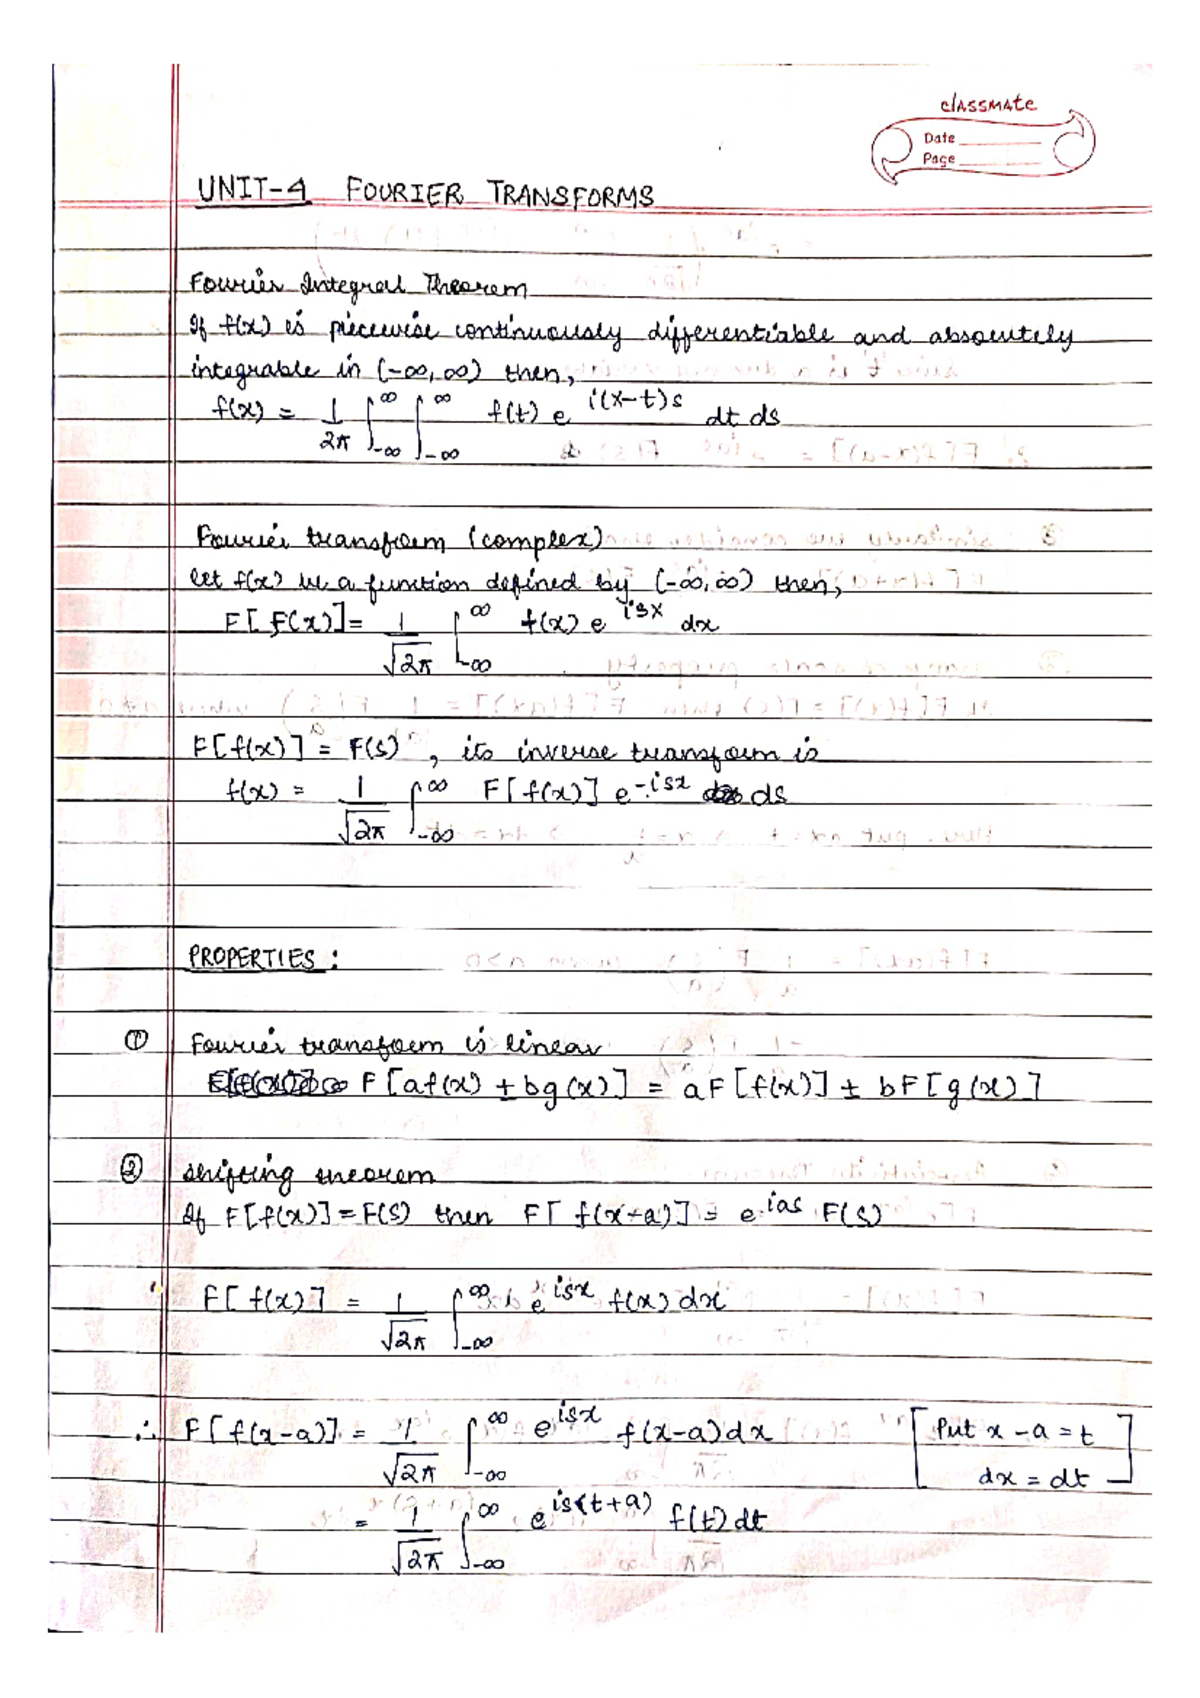 classmate
Date
Page
UNIT-4 FOURIER TRANSFORMS
Fourier Integral Theorem
If f(x) is piecewise continuously differentiable and absolutely
integrable in (-∞, ∞) then,
f(x) = 1/2π ∫_-∞^∞ ∫_-∞^∞ f(t) e^i(x-t)s dt ds
Fourier transform (complex)
let f(x) be a function defined by (-∞, ∞) then,
F[f(x)] = 1/√2π ∫_-∞^∞ f(x) e^isx dx
F[f(x)] = F(s), its inverse transform is
f(x) = 1/√2π ∫_-∞^∞ F[f(x)] e^-isx ds
PROPERTIES :
① Fourier transform is linear
F[af(x) ± bg(x)] = aF[f(x)] ± bF[g(x)]
② Shifting theorem
If F[f(x)] = F(s) then F[f(x-a)] = e^ias F(s)
F[f(x)] = 1/√2π ∫_-∞^∞ e^isx f(x) dx
∴ F[f(x-a)] = 1/√2π ∫_-∞^∞ e^isx f(x-a) dx [Put x-a = t
dx = dt]
= 1/√2π ∫_-∞^∞ e^is(t+a) f(t) dt